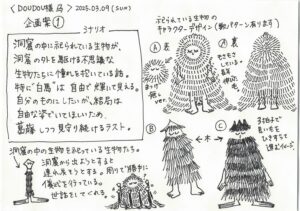 〈DOUDOU様 8〉 2025.03.09 (SUN)
企画案①
シナリオ
洞窟の中に祀られている生物が、
洞窟の外を駆ける不思議な
生物たちに憧れを抱いている話。
特に"白馬"は自由で優雅に見える。
自分のものにしたいが、結局は
自由な姿でいてほしいため、
葛藤しつつ見守り続けるテスト。
祀られている生物の
キャラクターデザイン(数パターン有ります)
Ⓐ 表
Ⓐ 裏
もさもさ
している
ver.
洞窟の中の生物を祀っている生物たち。
洞窟から出ようとすると
連れ戻そうとする。周りで勝手に
儀式を行っている。
世話をしてくれる
Ⓑ
←木→
Ⓒ
3頭身で
長い布を
ひきずって
進むイメージ